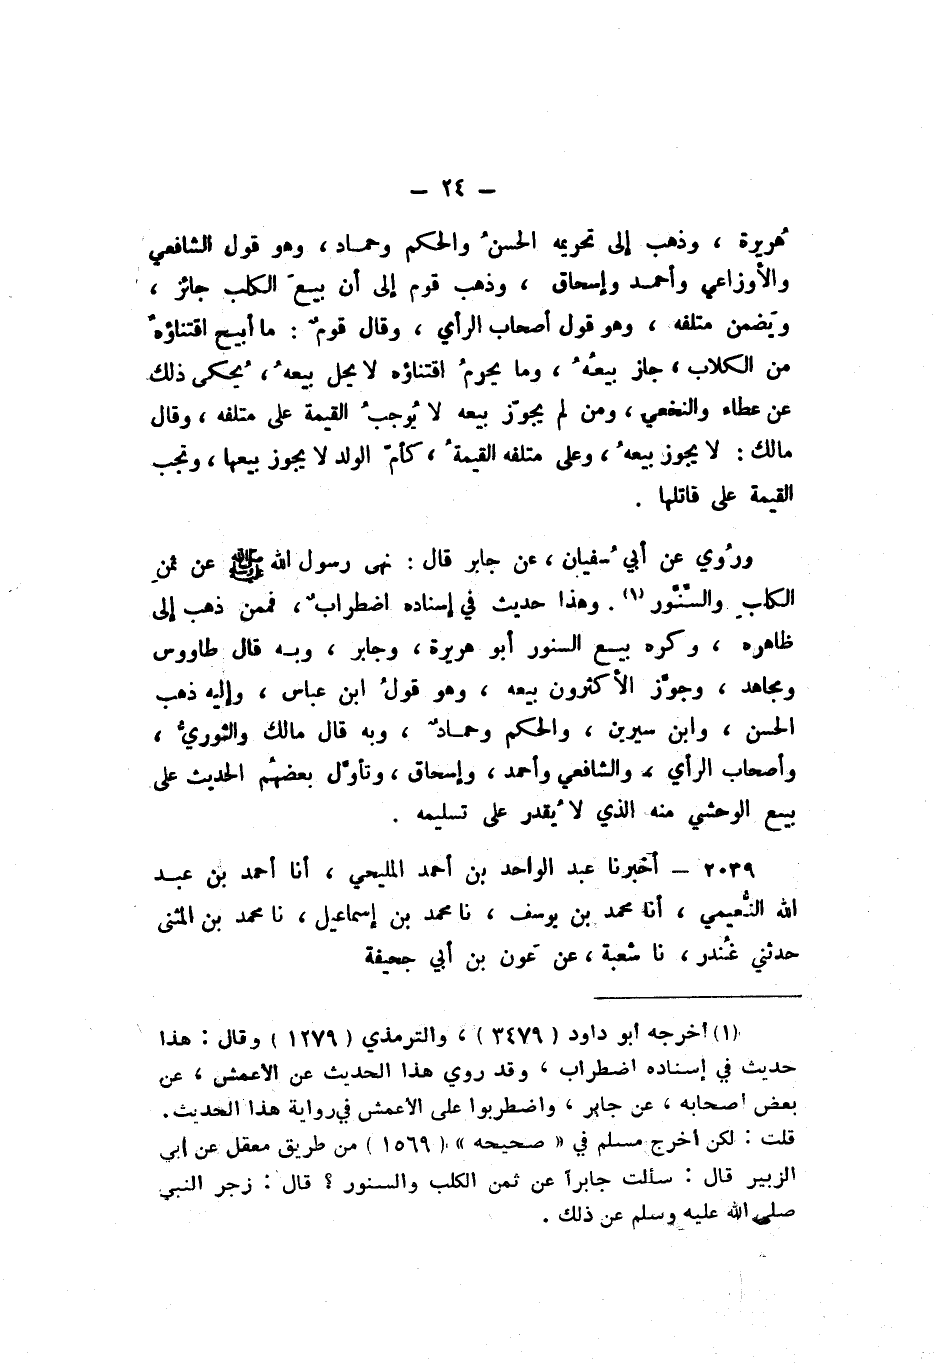 – ٢٤ –
هُريرة ، وذهب إلى تحريمه الحسنُ والحكم وحمـاد ، وهو قول الشافعي
والأوزاعي وأحمـد وإسحاق ، وذهب قوم إلى أن بيـعَ الكلب جائز ،
ويَضمن متلفه ، وهو قول أصحاب الرأي ، وقال قومٌ : ما أبيـح اقتناؤهُ
من الكلاب ، جاز بيعُهُ ، وما يحرمُ اقتناؤه لا يحل بيعهُ ، يُحكى ذلك
عن عطاء والنخعي ، ومن لم يجوّز بيعه لا يُوجبُ القيمة على متلفه ، وقال
مالك : لا يجوز بيعهُ ، وعلى متلفه القيمةُ ، كأمّ الولد لا يجوز بيعها ، وتجب
القيمة على قاتلها .
ورُوي عن أبي سُفيان ، عن جابر قال : نهى رسول الله ﷺ عن ثمنِ
الكلبِ والسِّنَّور (١) . وهذا حديث في إسناده اضطرابٌ ، فممن ذهب إلى
ظاهره ، وكره بيـع السنور أبو هريرة ، وجابر ، وبـه قال طاووس
ومجاهد ، وجوَّز الأكثرون بيعه ، وهو قولُ ابن عباس ، وإليه ذهب
الحسن ، وابن سيرين ، والحكم وحمـادٌ ، وبه قال مالك والثوريُّ ،
وأصحاب الرأي ، والشافعي وأحمد ، وإسحاق ، وتأوَّل بعضهُم الحديث على
بيـع الوحشي منه الذي لا يُقدر على تسليمه .
٢٠٣٩ – أخبرنا عبد الواحد بن أحمد المليحي ، أنا أحمد بن عبـد
الله النُّعيمي ، أنا محمد بن يوسف ، نا محمد بن إسماعيل ، نا محمد بن المثنى
حدثني غُندر ، نا شعبة ، عن عَون بن أبي جحيفة
(١) أخرجه أبو داود ( ٣٤٧٩ ) ، والترمذي ( ١٢٧٩ ) وقال : هذا
حديث في إسناده اضطراب ، وقد روي هذا الحديث عن الأعمش ، عن
بعض أصحابه ، عن جابر ، واضطربوا على الأعمش في رواية هذا الحديث .
قلت : لكن أخرج مسلم في « صحيحه » ( ١٥٦٩ ) من طريق معقل عن أبي
الزبير قال : سألت جابراً عن ثمن الكلب والسنور ؟ قال : زجر النبي
صلى الله عليه وسلم عن ذلك .